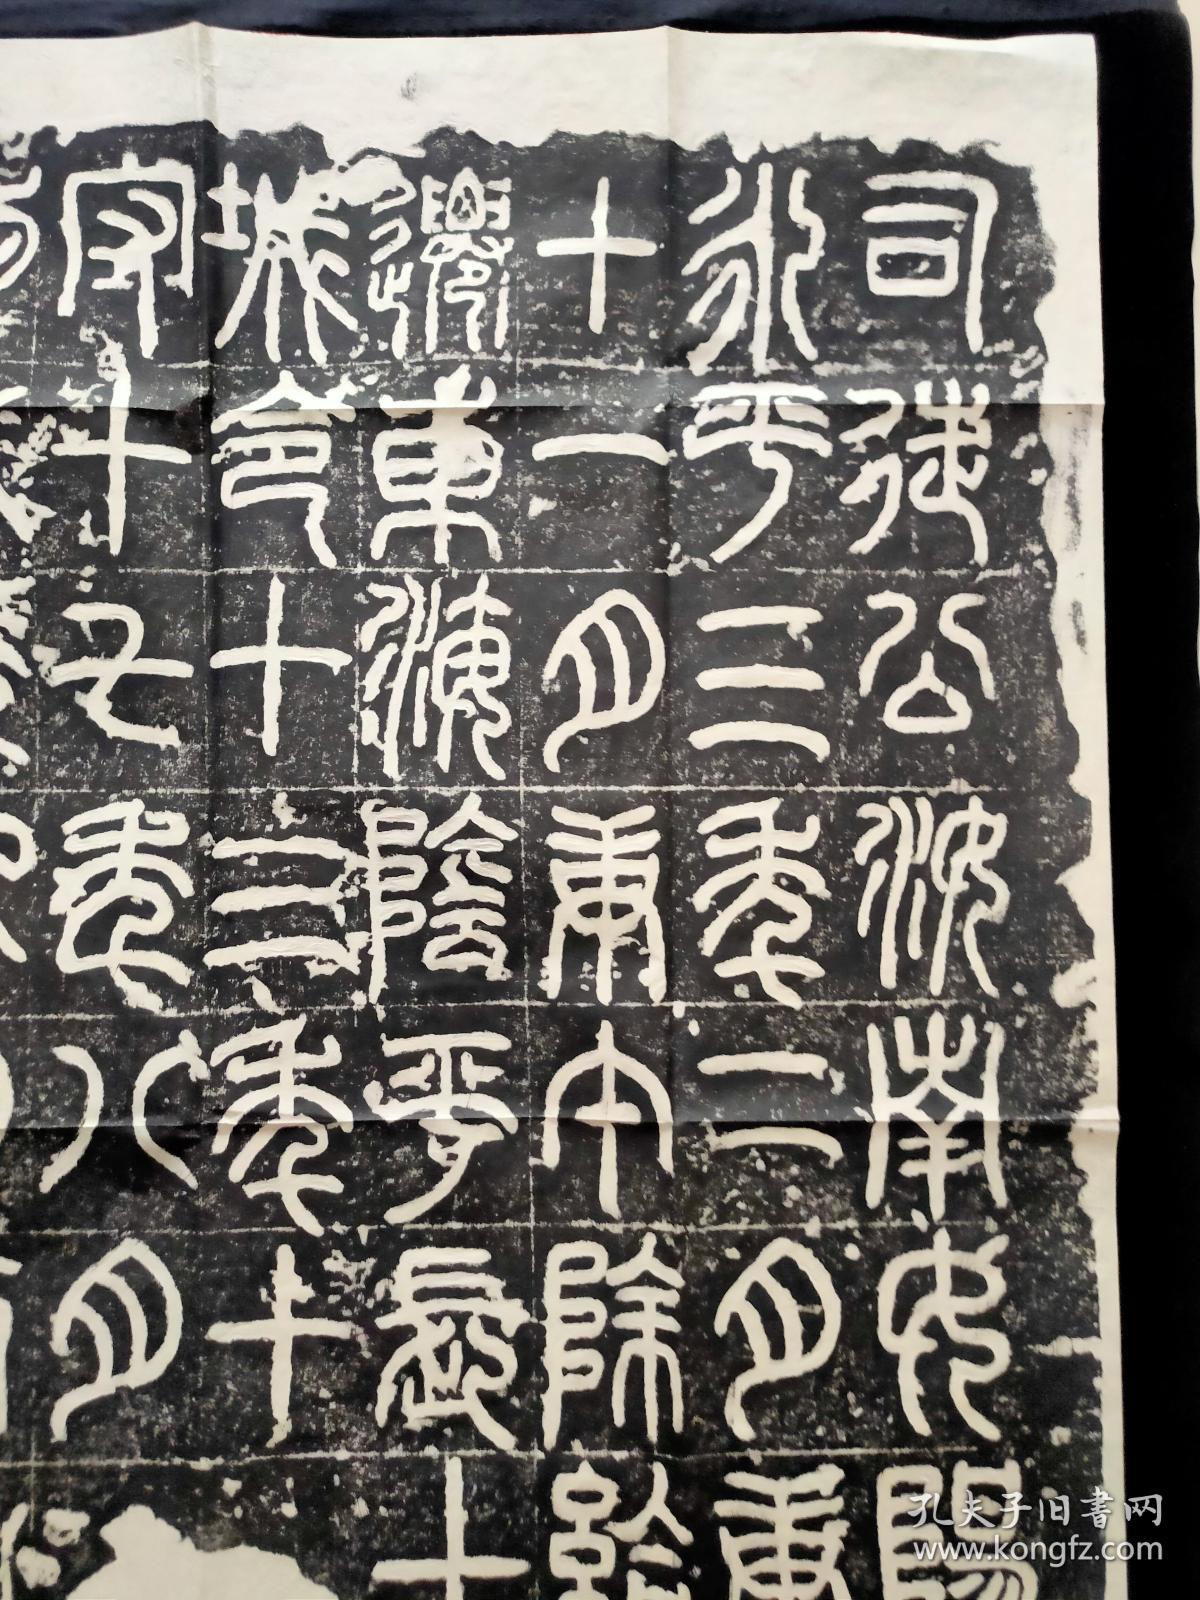 司徒公汝南女陽
永平三年二月庚
十一月庚午除給
遷東海陰平長十
城令十三年十
守十七年八月
孔夫子旧書网
www.kongfz.com